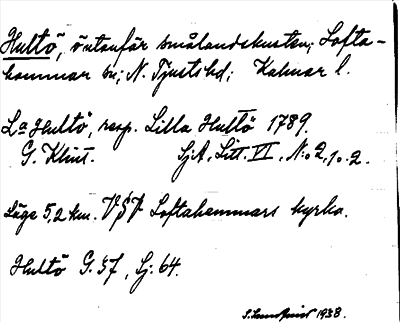 Hultö, i utanför smålandskusten; Lofta-
hammar sn; N. Tjusts hd; Kalmar l.
La Hultö, resp. Lilla Hultö 1789.
G. Klint. SjA, Litt. VI, N:o 2, 10.2.
Läge 5,2 km. VSV Loftahammars kyrka.
Hultö G. 57, Sj. 64.
1938.